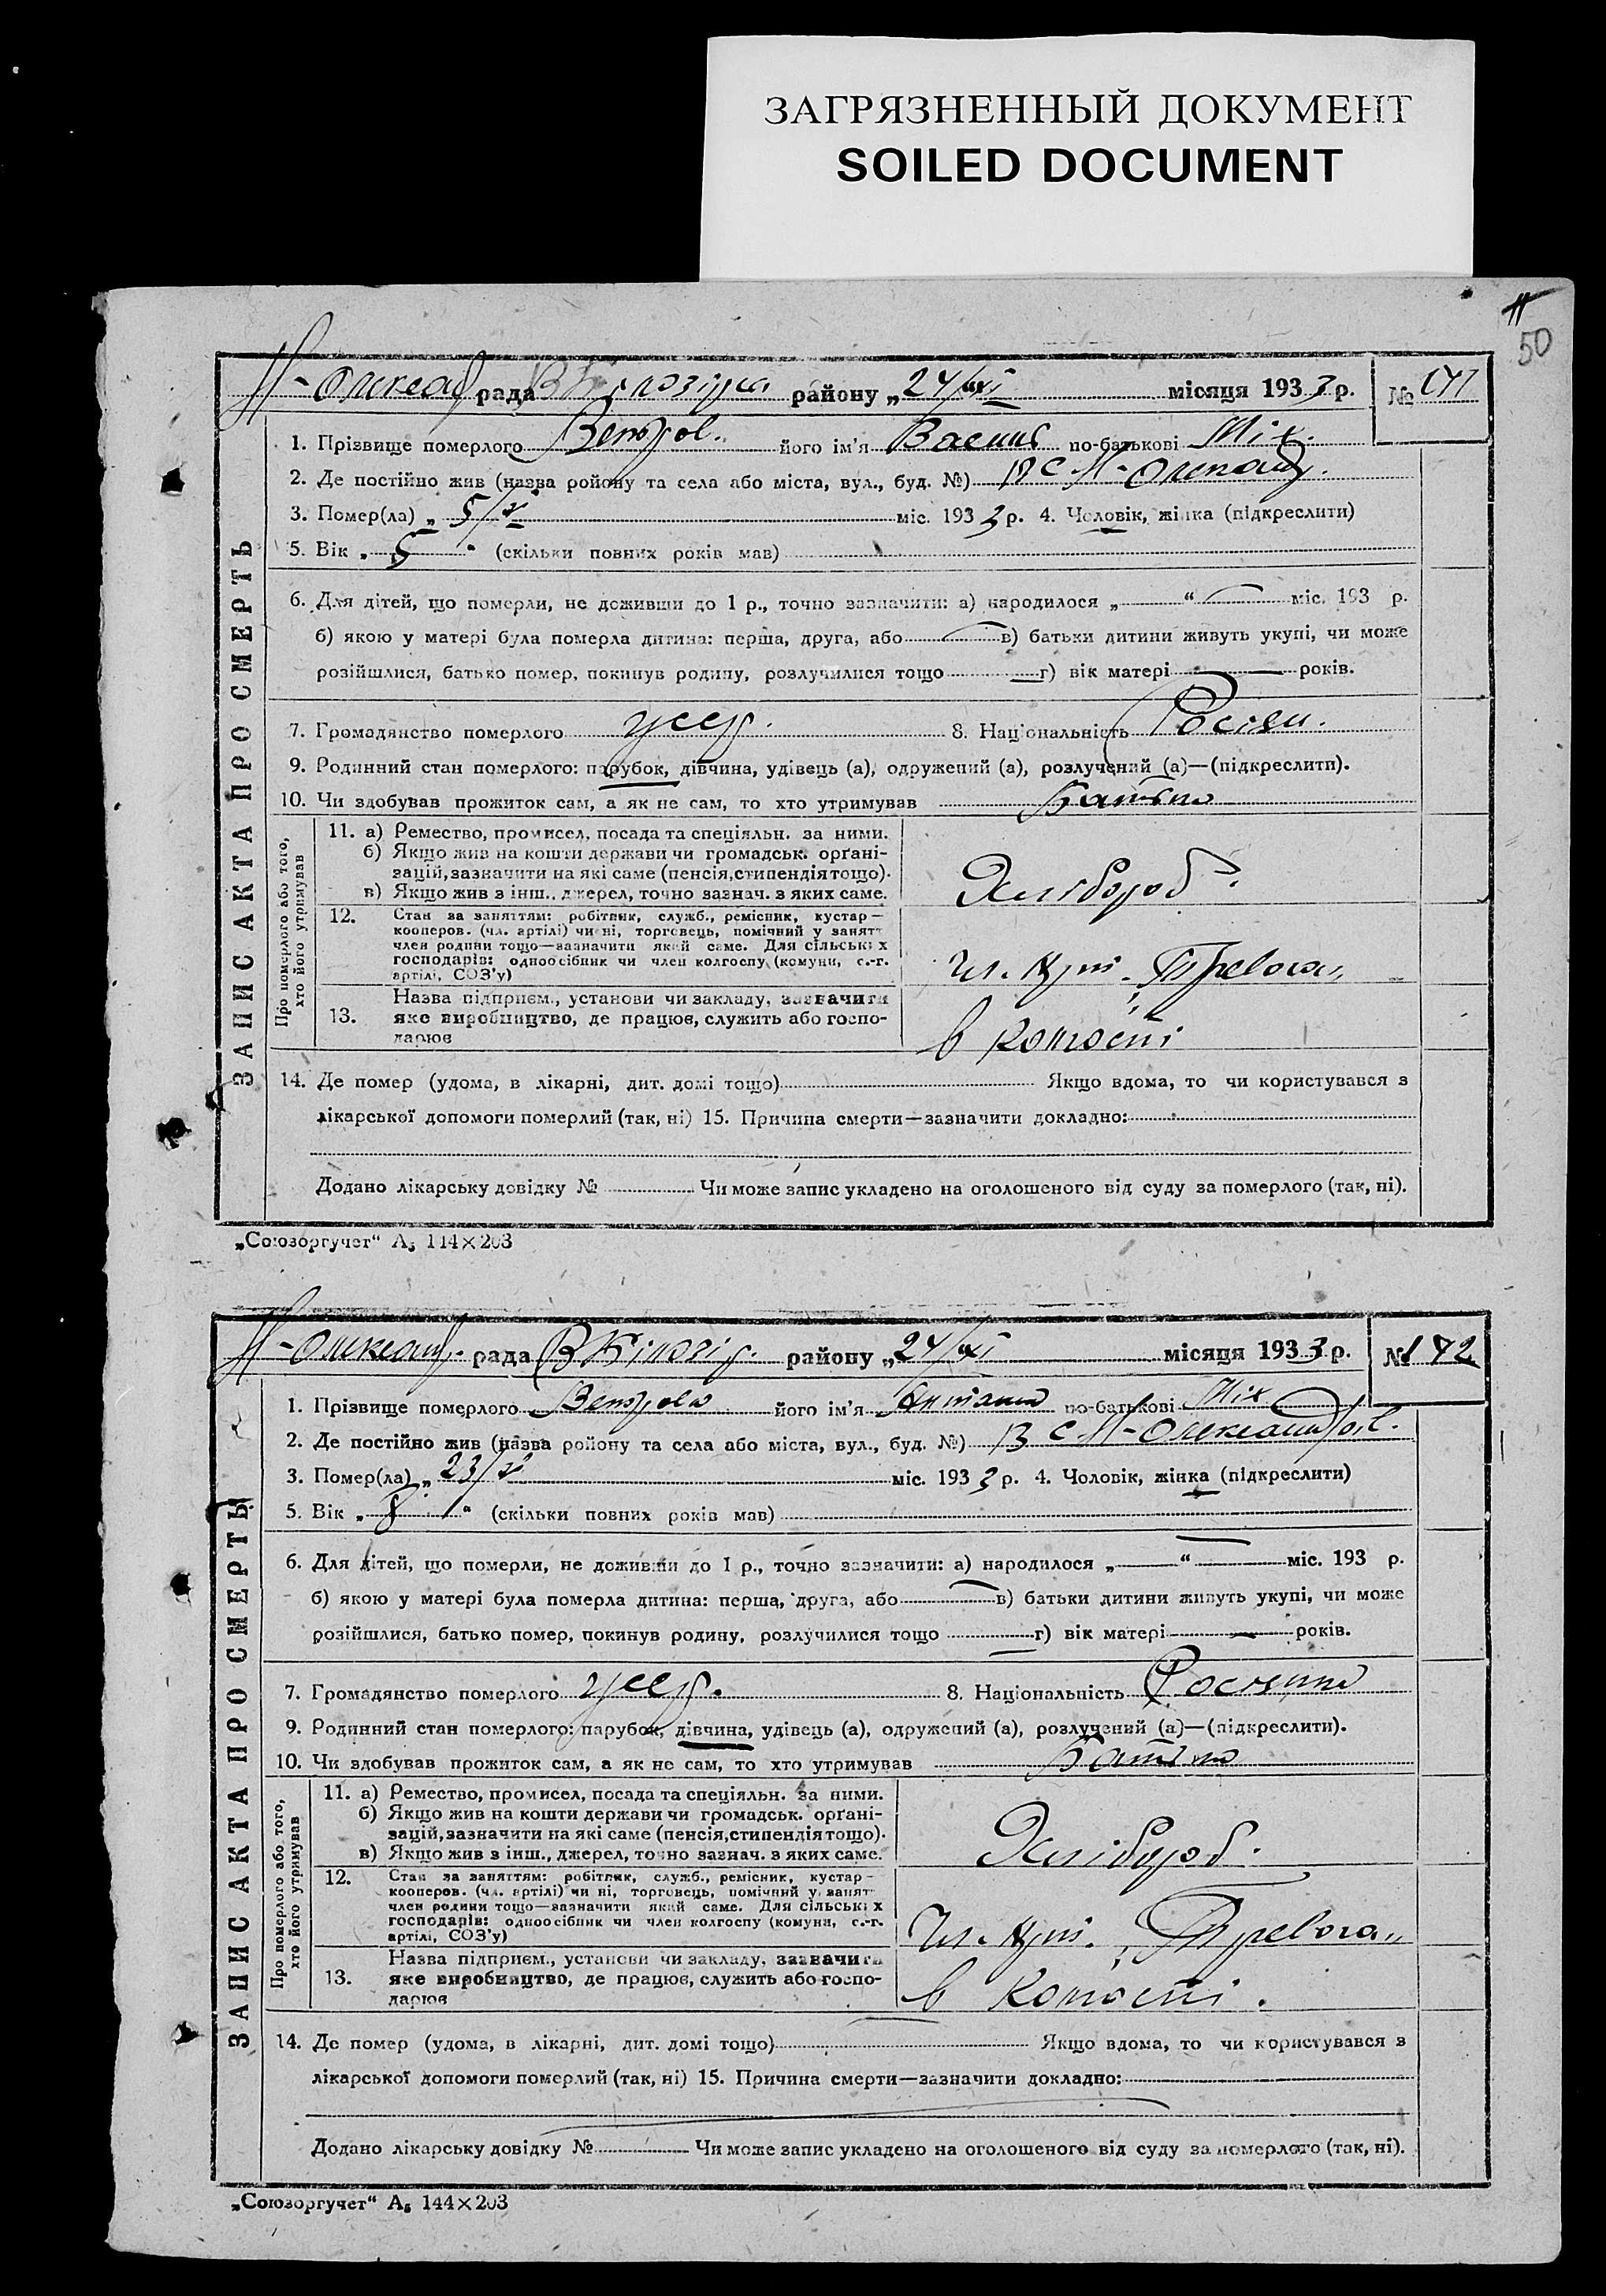 ЗАГРЯЗНЕННЫЙ ДОКУМЕНТ
SOILED DOCUMENT
50
рада району „24/XI місяця 1933 р. № 171
1. Прізвище померлого його ім'я Василь по-батькові Мих.
2. Де постійно жив (назва району та села або міста, вул., буд. №) В с.
3. Помер(ла) „ 5/V міс. 1933 р. 4. Чоловік, жінка (підкреслити)
5. Вік „ 5 " (скільки повних років мав)
6. Для дітей, що померли, не доживши до 1 р., точно зазначити: а) народилося „ “ міс. 193 р.
б) якою у матері була померла дитина: перша, друга, або в) батьки дитини живуть укупі, чи може
розійшлися, батько помер, покинув родину, розлучилися тощо г) вік матері років.
7. Громадянство померлого УССР. 8. Національність Росіян.
9. Родинний стан померлого: парубок, дівчина, удівець (а), одружений (а), розлучений (а)—(підкреслити).
10. Чи здобував прожиток сам, а як не сам, то хто утримував Батько
11. а) Ремество, промисел, посада та спеціяльн. за ними.
б) Якщо жив на кошти держави чи громадськ. орґані-
зацій, зазначити на які саме (пенсія, стипендія тощо).
в) Якщо жив з інш., джерел, точно зазнач. з яких саме.
Хлібороб.
12. Стан за заняттям: робітник, служб., ремісник, кустар—
кооперов. (чл. артілі) чи ні, торговець, помічний у занят
член родини тощо—зазначити який саме. Для сільських
господарів: одноосібник чи член колгоспу (комуни, с.-г.
артілі, СОЗ'у)
13. Назва підприєм., установи чи закладу, зазначити
яке виробництво, де працює, служить або госпо-
дарює
в колгоспі
14. Де помер (удома, в лікарні, дит. домі тощо) Якщо вдома, то чи користувався з
лікарської допомоги померлий (так, ні) 15. Причина смерти—зазначити докладно:
Додано лікарську довідку № Чи може запис укладено на оголошеного від суду за померлого (так, ні).
ЗАПИС АКТА ПРО СМЕРТЬ
Про померлого або того,
хто його утримував
„Союзоргучет“ А₅ 114×203
рада району „24/XI місяця 1933 р. № 172
1. Прізвище померлого його ім'я по-батькові Мих
2. Де постійно жив (назва району та села або міста, вул., буд. №) В с.
3. Помер(ла) „ 23/V міс. 1933 р. 4. Чоловік, жінка (підкреслити)
5. Вік „ 8 " (скільки повних років мав)
6. Для дітей, що померли, не доживши до 1 р., точно зазначити: а) народилося „ “ міс. 193 р.
б) якою у матері була померла дитина: перша, друга, або в) батьки дитини живуть укупі, чи може
розійшлися, батько помер, покинув родину, розлучилися тощо г) вік матері років.
7. Громадянство померлого УССР. 8. Національність Росіянка
9. Родинний стан померлого: парубок, дівчина, удівець (а), одружений (а), розлучений (а)—(підкреслити).
10. Чи здобував прожиток сам, а як не сам, то хто утримував Батько
11. а) Ремество, промисел, посада та спеціяльн. за ними.
б) Якщо жив на кошти держави чи громадськ. орґані-
зацій, зазначити на які саме (пенсія, стипендія тощо).
в) Якщо жив з інш., джерел, точно зазнач. з яких саме.
Хлібороб.
12. Стан за заняттям: робітник, служб., ремісник, кустар—
кооперов. (чл. артілі) чи ні, торговець, помічний у занят
член родини тощо—зазначити який саме. Для сільських
господарів: одноосібник чи член колгоспу (комуни, с.-г.
артілі, СОЗ'у)
13. Назва підприєм., установи чи закладу, зазначити
яке виробництво, де працює, служить або госпо-
дарює
в колгоспі.
14. Де помер (удома, в лікарні, дит. домі тощо) Якщо вдома, то чи користувався з
лікарської допомоги померлий (так, ні) 15. Причина смерти—зазначити докладно:
Додано лікарську довідку № Чи може запис укладено на оголошеного від суду за померлого (так, ні).
ЗАПИС АКТА ПРО СМЕРТЬ
Про померлого або того,
хто його утримував
„Союзоргучет“ А₅ 144×203